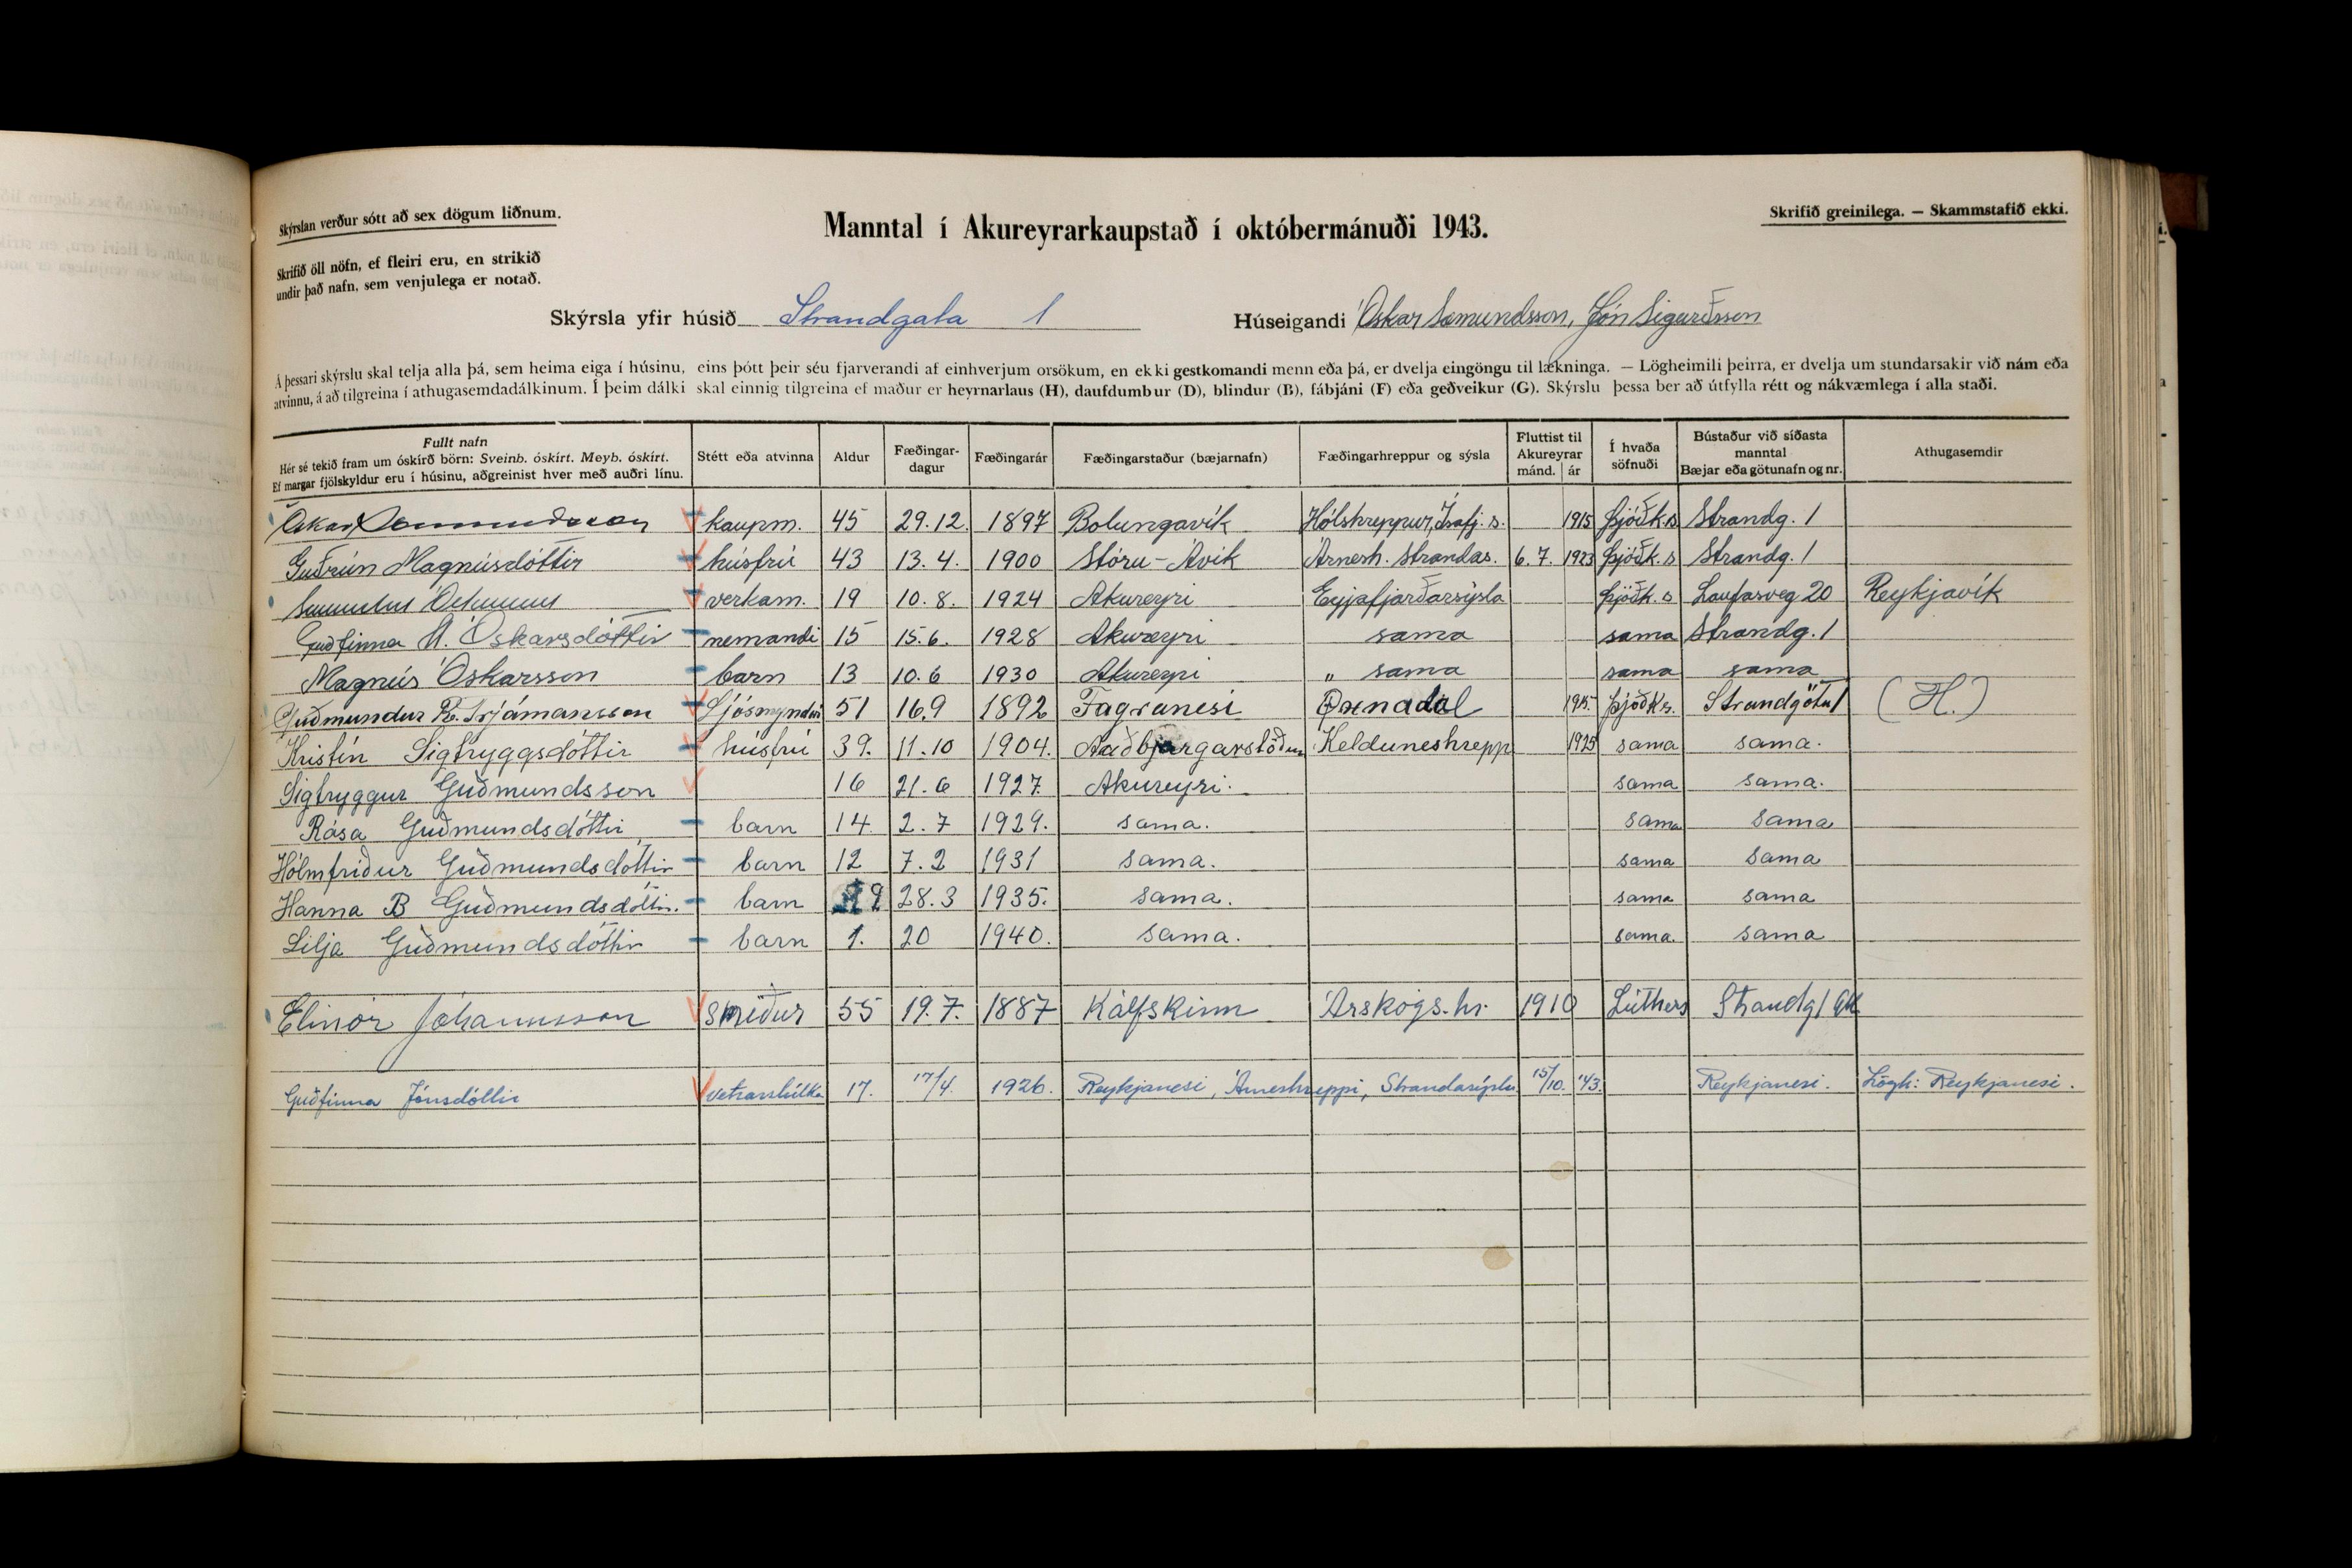 Skýrslan verður sótt að sex dögum liðnum.
Manntal í Akureyrarkaupstað í októbermánuði 1943.
Skrifið greinilega. — Skammstafið ekki.
Skrifið öll nöfn, ef fleiri eru, en strikið
undir það nafn, sem venjulega er notað.
Skýrsla yfir húsið Strandgata 1 Húseigandi Óskar Sæmundsson, Jón Sigurðsson
Á þessari skýrslu skal telja alla þá, sem heima eiga í húsinu, eins þótt þeir séu fjarverandi af einhverjum orsökum, en ekki gestkomandi menn eða þá, er dvelja eingöngu til lækninga. — Lögheimili þeirra, er dvelja um stundarsakir við nám eða
atvinnu, á að tilgreina í athugasemdadálkinum. Í þeim dálki skal einnig tilgreina ef maður er heyrnarlaus (H), daufdumbur (D), blindur (B), fábjáni (F) eða geðveikur (G). Skýrslu þessa ber að útfylla rétt og nákvæmlega í alla staði.
Fullt nafn
Hér sé tekið fram um óskírð börn: Sveinb. óskírt. Meyb. óskírt.
Ef margar fjölskyldur eru í húsinu, aðgreinist hver með auðri línu.
Stétt eða atvinna
Aldur
Fæðingar-
dagur
Fæðingarár
Fæðingarstaður (bæjarnafn)
Fæðingarhreppur og sýsla
Fluttist til
Akureyrar
mánd. ár
Í hvaða
söfnuði
Bústaður við síðasta
manntal
Bæjar eða götunafn og nr.
Athugasemdir
Óskar Sæmundsson kaupm. 45 29.12. 1897 Bolungavík Hólshreppur, Ísafj.s. 1915 þjóðk.s Strandg. 1
Guðrún Magnúsdóttir húsfrú 43 13.4. 1900 Stóru-Ávík Árnesh. Strandas. 6.7. 1923 þjóðk.s Strandg. 1
verkam. 19 10.8. 1924 Akureyri Eyjafjarðarsýsla þjóðk.s Laufásveg 20 Reykjavík
Guðfinna Óskarsdóttir nemandi 15 15.6. 1928 Akureyri sama sama Strandg. 1
Magnús Óskarsson barn 13 10.6 1930 Akureyri " sama sama sama
Guðmundur R. Trjámansson Ljósmyndari 51 16.9 1892 Fagranesi Öxnadal 1915. þjóðk.s. Strandgötu 1 (H.)
Kristín Sigtryggsdóttir húsfrú 39. 11.10 1904. Auðbjargarstöðum Kelduneshrepp 1925 sama sama.
Sigtryggur Guðmundsson 16 21.6 1927. Akureyri. sama sama.
Rósa Guðmundsdóttir barn 14 2.7 1929. sama. sama sama
Hólmfriður Guðmundsdóttir barn 12 7.2 1931 sama. sama sama
Hanna B Guðmundsdóttir. barn 9 28.3 1935. sama. sama sama
Lilja Guðmundsdóttir barn 1. 20 1940. sama. sama. sama
Elinór Jóhannsson smiður 55 19.7. 1887 Kálfskinn Árskógs.hr. 1910 Lúthers Strandg 1 Ak
Guðfinna Jónsdóttir vetrarstúlka 17. 17/4. 1926. Reykjanesi, Árneshreppi, Strandasýslu 15/10. '43. Reykjanesi. Lögh: Reykjanesi.